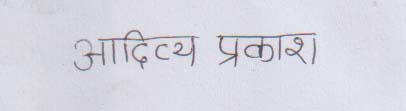 आदित्य प्रकाश